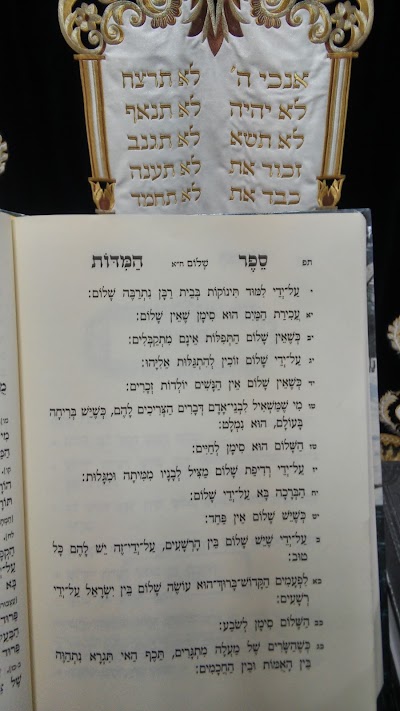 אנכי ה' לא תרצח
לא יהיה לא תנאף
לא תשא לא תגנב
זכור את לא תענה
כבד את לא תחמד
תפ סֵפֶר שָׁלוֹם ח״א הַמִּדּוֹת
י עַל־יְדֵי לִמּוּד תִּינוֹקוֹת בְּבֵית רַבָּן נִתְרַבֶּה שָׁלוֹם:
יא עֲבִירַת הַמַּיִם הוּא סִימָן שֶׁאֵין שָׁלוֹם:
יב כְּשֶׁאֵין שָׁלוֹם הַתְּפִלּוֹת אֵינָם מִתְקַבְּלִים:
יג עַל־יְדֵי שָׁלוֹם זוֹכִין לְהִתְגַּלּוּת אֵלִיָּהוּ:
יד כְּשֶׁאֵין שָׁלוֹם אֵין הַנָּשִׁים יוֹלְדוֹת זְכָרִים:
טו מִי שֶׁמַּשְׁאִיל לִבְנֵי־אָדָם דְּבָרִים הַצְּרִיכִים לָהֶם, כְּשֶׁיֵּשׁ בְּרִיחָה
בָּעוֹלָם, הוּא נִמְלָט:
טז הַשָּׁלוֹם הוּא סִימָן לְחַיִּים:
יז עַל־יְדֵי רְדִיפַת שָׁלוֹם מַצִּיל לְבָנָיו מִמִּיתָה וּמִגָּלוּת:
יח הַבְּרָכָה בָּא עַל־יְדֵי שָׁלוֹם:
יט כְּשֶׁיֵּשׁ שָׁלוֹם אֵין פַּחַד:
כ עַל־יְדֵי שֶׁיֵּשׁ שָׁלוֹם בֵּין הָרְשָׁעִים, עַל־יְדֵי־זֶה יֵשׁ לָהֶם כָּל
טוּב:
כא לִפְעָמִים הַקָּדוֹשׁ־בָּרוּךְ־הוּא עוֹשֶׂה שָׁלוֹם בֵּין יִשְׂרָאֵל עַל־יְדֵי
רְשָׁעִים:
כב הַשָּׁלוֹם סִימָן לְשֹׂבַע:
כג כְּשֶׁהַשָּׂרִים שֶׁל מַעְלָה מִתְגָּרִים, תֵּכֶף הַאי תִּגְרָא נִתְהַוֶּה
בֵּין הָאֻמּוֹת וּבֵין הַחֲכָמִים: